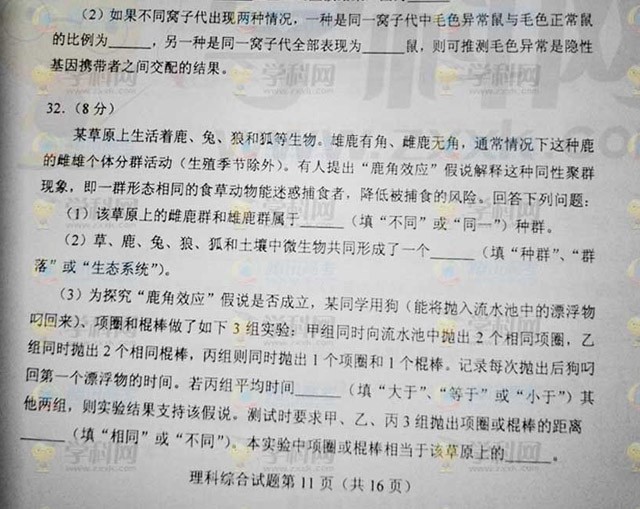 （2）如果不同窝子代出现两种情况，一种是同一窝子代中毛色异常鼠与毛色正常鼠
的比例为______，另一种是同一窝子代全部表现为______鼠，则可推测毛色异常是隐性
基因携带者之间交配的结果。
32.（8分）
某草原上生活着鹿、兔、狼和狐等生物。雄鹿有角、雌鹿无角，通常情况下这种鹿
的雌雄个体分群活动（生殖季节除外）。有人提出“鹿角效应”假说解释这种同性聚群
现象，即一群形态相同的食草动物能迷惑捕食者，降低被捕食的风险。回答下列问题：
（1）该草原上的雌鹿群和雄鹿群属于______（填“不同”或“同一”）种群。
（2）草、鹿、兔、狼、狐和土壤中微生物共同形成了一个______（填“种群”、“群
落”或“生态系统”）。
（3）为探究“鹿角效应”假说是否成立，某同学用狗（能将抛入流水池中的漂浮物
叼回来）、项圈和棍棒做了如下3组实验：甲组同时向流水池中抛出2个相同项圈，乙
组同时抛出2个相同棍棒，丙组则同时抛出1个项圈和1个棍棒。记录每次抛出后狗叼
回第一个漂浮物的时间。若丙组平均时间______（填“大于”、“等于”或“小于”）其
他两组，则实验结果支持该假说。测试时要求甲、乙、丙3组抛出项圈或棍棒的距离
______（填“相同”或“不同”）。本实验中项圈或棍棒相当于该草原上的______。
理科综合试题第11页（共16页）